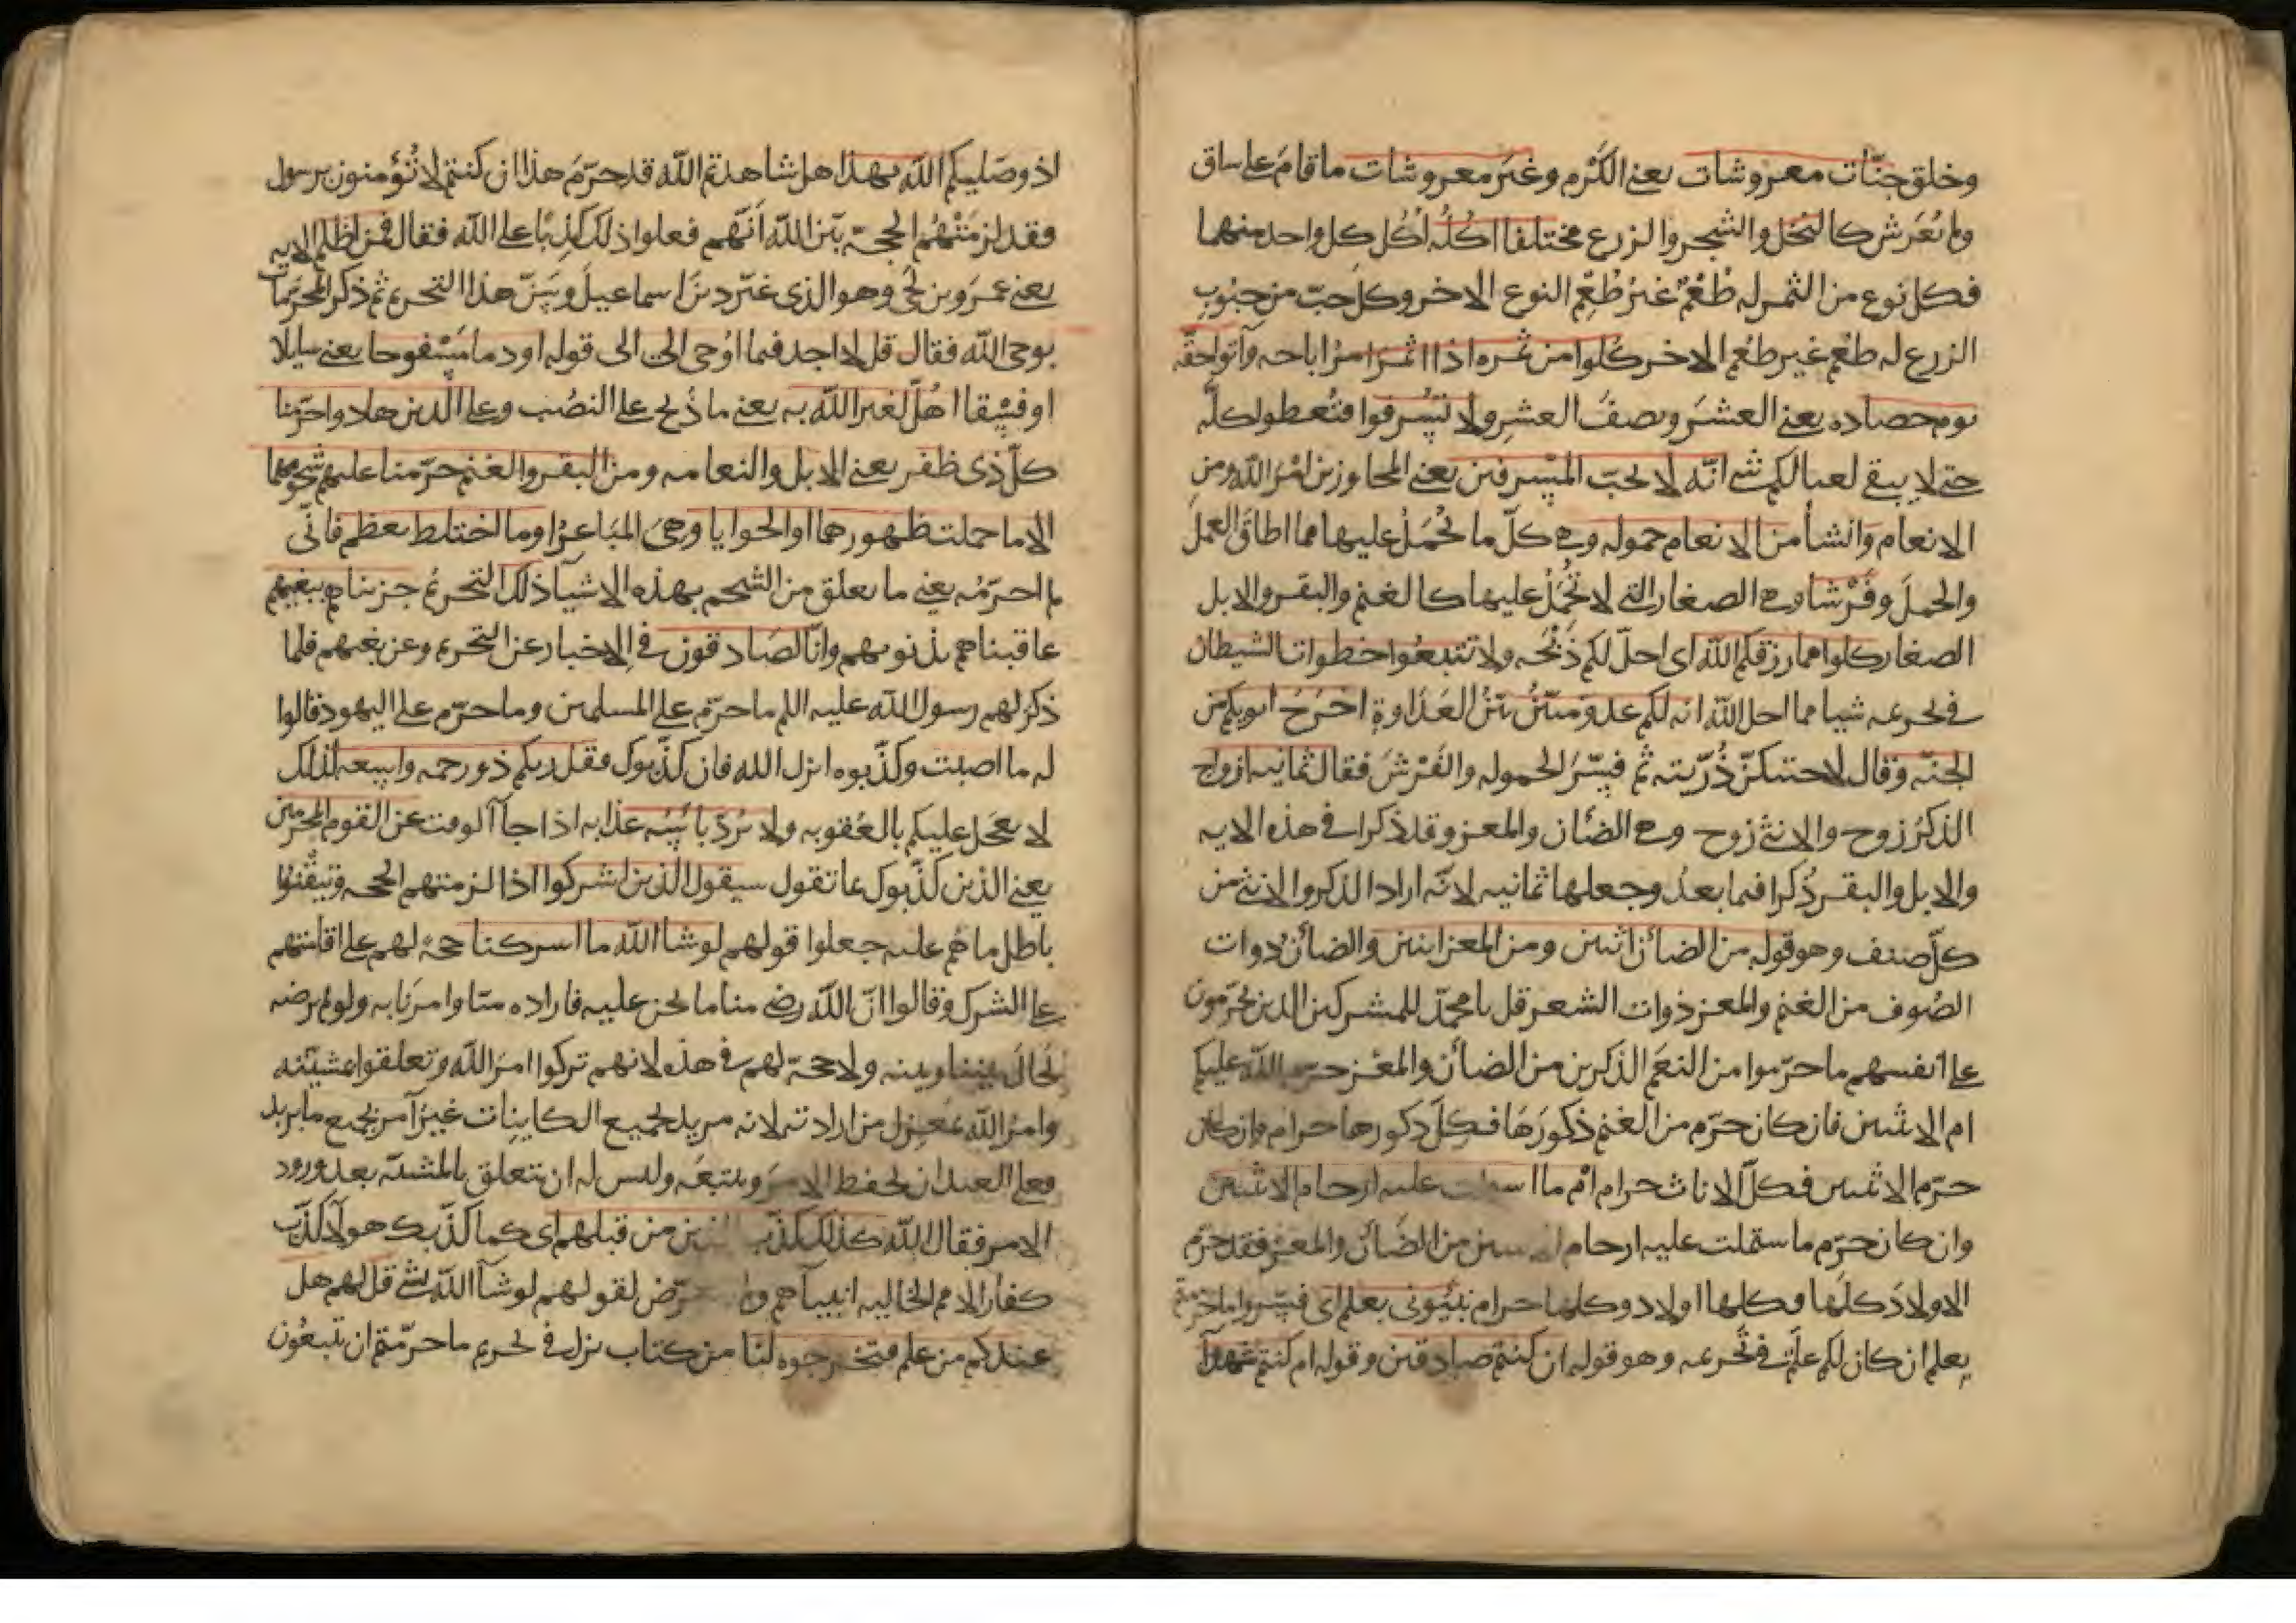 وخلق جنّات معروشات يعني الكَرْم وغيَر معروشات ما قامَ على ساق
ولم يُعَرش كالنخل والشجر والزرع مختلفا اكُلُه اكُل كل واحد منهما
فكل نوع من الثمر له طُعْمٌ غيرُ طُعْمِ النوع الاخر وكل حبّ من حبُوب
الزرع له طعْم غير طعْم الاخر كُلوا من ثمره اذا اثمرَ امرُ اباحه وآتوا حقّه
يوم حصاده يعني العشرَ ونصفَ العشرِ ولا تُسْرفوا فتُعطوا كلّه
حتى لا يبقى لعيالكم شي انّه لا يحبّ المسْرفين يعني المجاوزين امْرَ الله ومن
الانعام وَانشأ من الانعام حموله وهي كلّ ما يُحْمَلُ عليها مما اطاقَ العملَ
والحملَ وفَرْشا وهي الصغار التي لا يُحْمَلُ عليها كالغنم والبقر والابل
الصغار كلوا مما رزقكم الله اى احلّ لكم ذَبْحَه ولا تتبعُوا خطوات الشيطان
في تحريمه شيا مما احل الله انه لكم عدو مبيْنٌ بيّنُ العَدَاوة اخرَجَ ابويكم من
الجنّه وقال لاحتنكنّ ذُرّيته ثم فسّرَ الحموله والفَرْشَ فقال ثمانيه ازواج
الذكرُ زوج والانثى زوج وهي الضأن والمعز وقد ذكرا في هذه الايه
والابل والبقر ذُكرا فيما بعدُ وجعلها ثمانيه لانّه اراد الذكر والانثى من
كلّ صنف وهو قوله من الضأن اثنين ومن المعز اثنين والضأنُ ذوات
الصُوف من الغنم والمعز ذوات الشعر قل يا محمّد للمشركين الذين يحرّمون
على انفسهم ما حرّموا من النعَم الذكرين من الضأن والمعْز حرّم الله عليكم
ام الانثيين فان كان حرّم من الغنم ذكورَهَا فكلّ ذكورها حرام وان كان
حرّم الانثيين فكلّ الاناث حرام امْ ما اشتملت عليه ارحام الانثيين
وان كان حرّم ما شتملت عليه ارحام الانثيين من الضَأن والمعز فقد حرّم
الاولادَ كلّها وكلها اولاد وكلها حرام نبّئونى بعلم اى فسّروا ما حرّمتم
بعلم ان كان لكم علم في تحريمه وهو قوله ان كنتم صادقين وقوله ام كنتم شهدآ
اذ وصّيكم الله بهذا هل شاهدتم الله قد حرّمَ هذا ان كنتم لا تُؤمنون برسول
فقد لزمَتْهُم الحجة بيّن الله انَّهم فعلوا ذلك كذِبًا على الله فقال فمن اظلم الايه
يعني عمرَو بن لُحَي وهو الذى غيّر دينَ اسماعيلَ وسَنّ هذا التحريم ثم ذكر المحرّمات
بوحى الله فقال قل لا اجد فيما اوُحى الىّ الى قوله او دما مسْفوحا يعني سايلا
او فسْقا اهُلّ لغير الله به يعني ما ذُبح على النصُب وعلى الّذين هادوا حرّمنا
كلّ ذى ظفر يعني الابل والنعامه ومن البقر والغنم حرّمنا عليهم شحومهما
الا ما حملت ظهورهما او الحوايا وهىَ المبَاعرُ او ما اختلط بعظم فانّى
لم احرّمْه يعني ما يعلق من الشحم بهذه الاشيآ ذلك التحريمُ جزيناهم ببغيهم
عاقبناهم بذنوبهم وانّا لصَادقون في الاخبار عن التحريم وعن بغيهم فلما
ذكر لهم رسول الله عليه اللم ما حرّم على المسلمين وما حرّم على اليهود قالوا
له ما اصبت وكذّبوه انزل الله فان كذّبوك فقل ربكم ذو رحمه واسعه لذلك
لا يعجَل عليكم بالعُقوبه ولا يُردّ بأسُه عذابه اذا جآ الوقت عن القوم المجرمين
يعني الذين كذّبوك بما تقول سيقول الذين اشركوا اذا لزمتهم الحجه وتيقّنوا
باطل ما هُم عليه جعلوا قولهم لو شا الله ما اشركنا حجةً لهم على اقامتهم
على الشرك وقالوا انّ الله رضي منا ما نحن عليه فاراده منّا وامرَنا به ولو لم يرضه
لحَالَ بيننا وبينه ولا حجّة لهم في هذه لانهم تركوا امرَ الله وتعلقوا بمشيّته
وامرُ الله بمعزل من ارادته لانه مريد لجميع الكاينات غيرُ آمر بجميع ما يريد
فعلى العبد ان يحفظ الامرَ ويتبعَه وليس له ان يتعلق بالمشيّة بعد ورود
الامر فقال الله كذلك كذّب الذين من قبلهم اى كما كذّبك هولآ كذّب
كفار الامم الخاليه انبيآهم ولم يتعرّض لقولهم لو شآ الله بشي قل لهم هل
عندكم من علم فتخرجوه لنا من كتاب نزل في تحريم ما حرّمتم ان تتبعُون